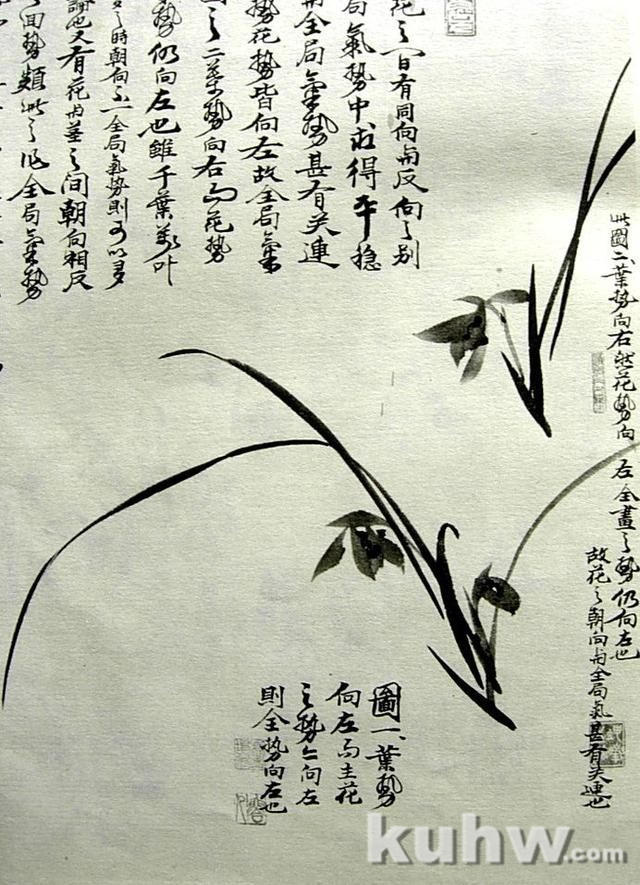 此圖二、葉勢向右然花勢向左全畫之勢仍向左也
故花之朝向與全局氣甚有关連也
有同向與反向之别
局氣勢中求得平穩
全局氣勢甚有关連
勢花勢皆向左故全局氣
之二葉勢向右而花勢
勢仍向左也雖千葉萬叶
之時朝向不一全局氣勢則可以多
也又有花與莖之间朝向相反
回勢類此之全局氣勢
圖一、葉勢
向左而主花
之勢亦向左
則全勢向左也
kuhw.com